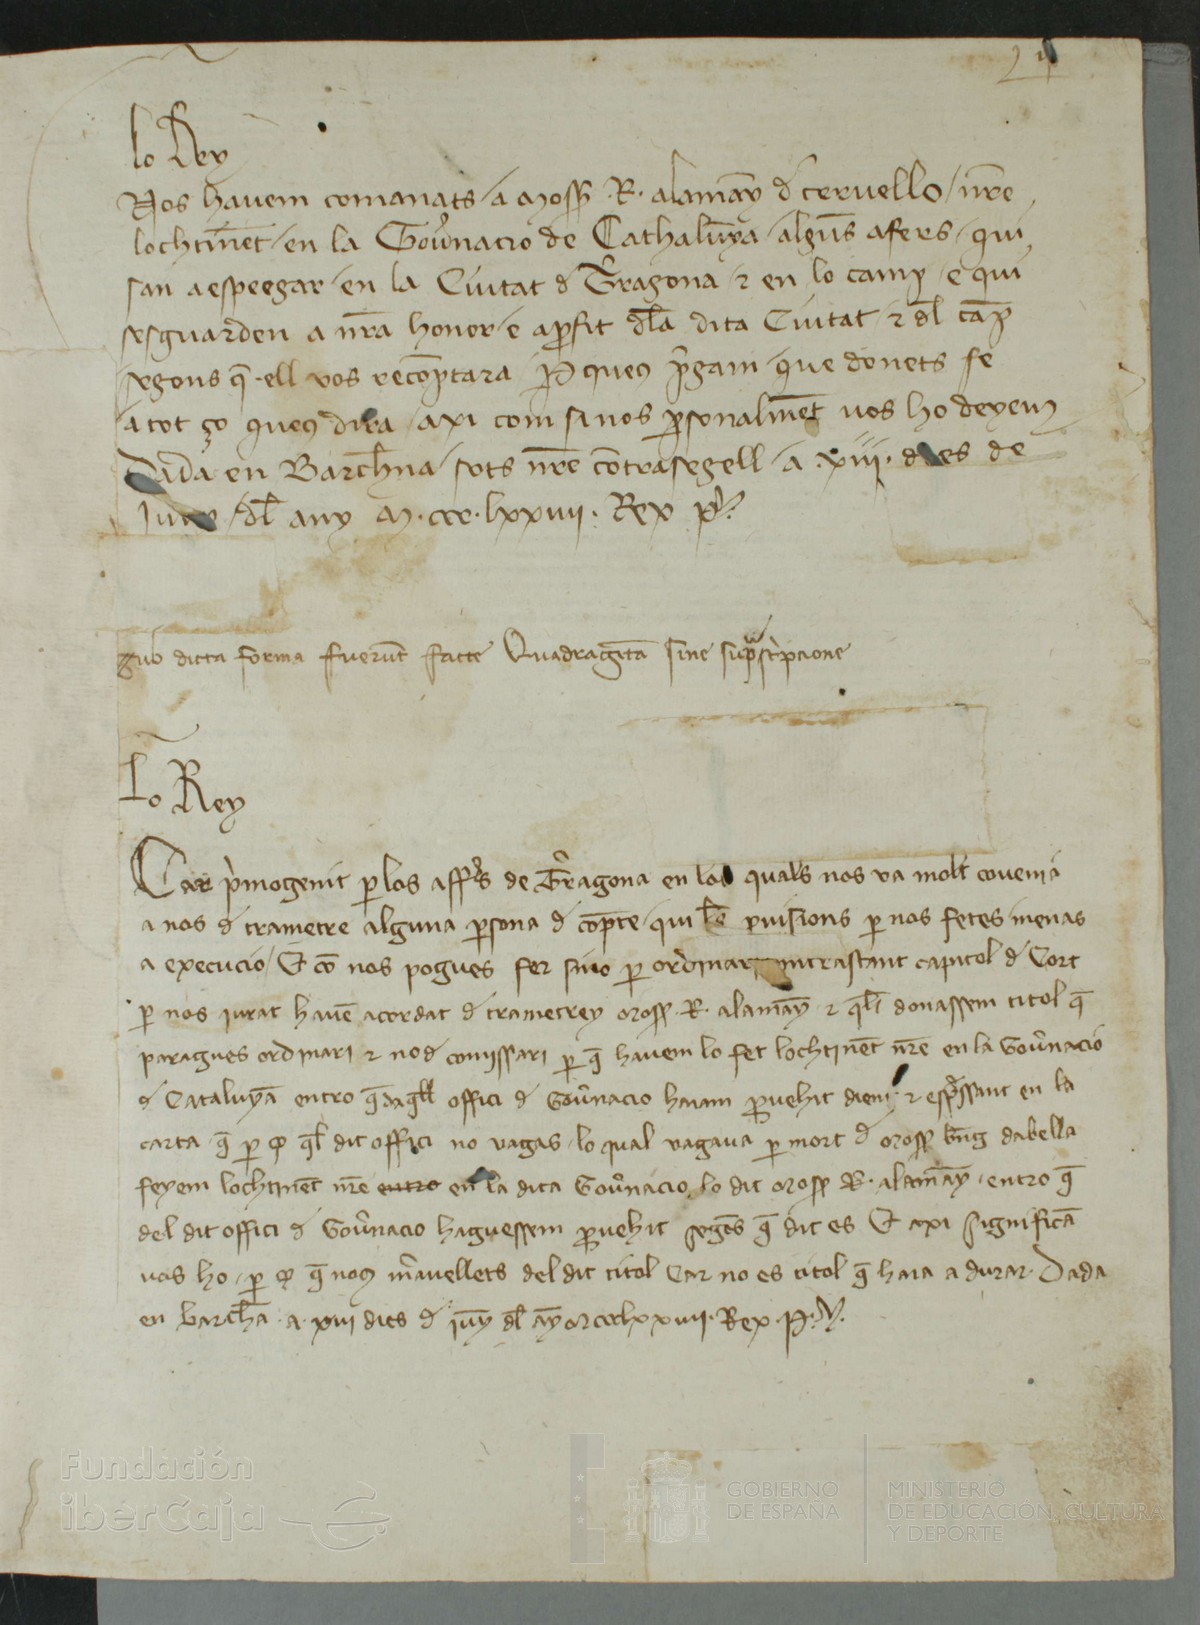 lo Rey
Nos havem comanats a Moss R. alamany d cervello / nre
lochtinet en la Gounacio de Cathalunya alguns afers qui
san a espeegar en la Ciutat d Tragona & en lo camp e qui
sesguarden a nra honor e a profit dla dita Ciutat & dl camp
segons q ell vos recomptara P queus pgam que donets fe
a tot ço queus dira axi com si nos psonalmet vos ho deyem
Dada en Barchna sots nre contrasegell a .xiii. dies de
Juny dl any M.ccc.lxxiiii. Rex p.
Sub dicta forma fuerunt facte Quadraginta sine suprascripcione
Lo Rey
Car pmogenit p los affers de Tragona en los quals nos va molt covenia
a nos d trametre alguna psona d compte qui les puisions p nos fetes menas
a execucio Et com nos pogues fer sino p ordinari contrastant capitol d Cort
p nos jurat havem acordat d trametrey moss. R. alamany & qli donassem titol q
paragues ordinari & no d comissari p q havem lo fet lochtinet nre en la Gouernacio
d Cataluya entro q daqll offici d Gouernacio haiam puehit dient & espssant en la
carta q p ql dit offici no vagas lo qual vagava p mort d moss dabella
feyem lochtinet nre entro en la dita Gouernacio lo dit moss R. alamany entro q
del dit offici d Gouernacio haguessem puehit segons q dit es Et axi significam
vos ho p q nous mravellets del dit titol Car no es titol q haia a durar Dada
en barchna a xiii dies d juny dl any mccclxxiiii. Rex .P.
Fundación
iberCaja
GOBIERNO
DE ESPAÑA
MINISTERIO
DE EDUCACIÓN, CULTURA
Y DEPORTE